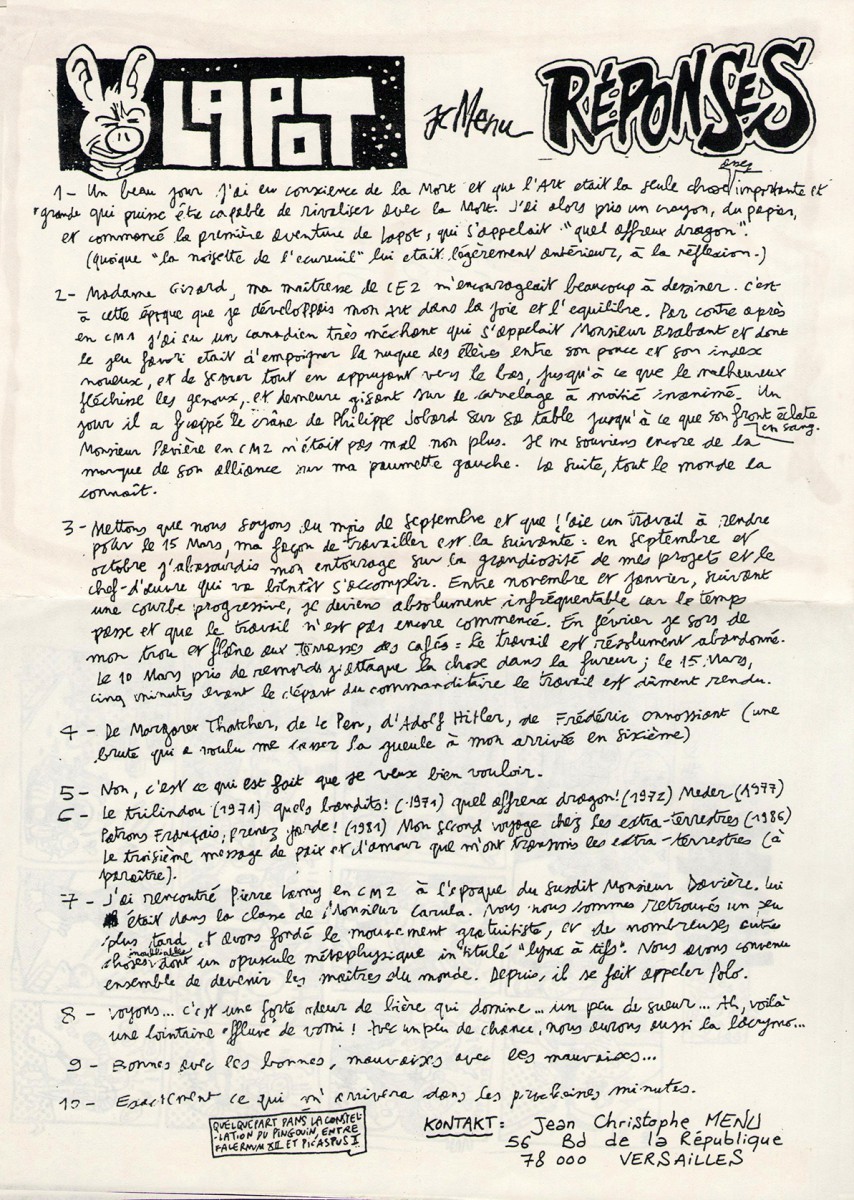 LAPOT
JC Menu
RÉPONSES
1 - Un beau jour j'ai eu conscience de la Mort et que l'Art etait la seule chose assez importante et
grande qui puisse être capable de rivaliser avec la Mort. J'ai alors pris un crayon, du papier,
et commencé la première aventure de Lapot, qui s'appelait "quel affreux dragon".
(quoique "la noisette de l'ecureuil" lui etait légèrement antérieur, à la réflexion.)
2 - Madame Girard, ma maîtresse de CE2 m'encourageait beaucoup à dessiner. c'est
à cette époque que je développais mon Art dans la joie et l'equilibre. Par contre après
en CM1 j'ai eu un canadien très méchant qui s'appelait Monsieur Brabant et dont
le jeu favori etait d'empoigner la nuque des élèves entre son pouce et son index
noueux, et de serrer tout en appuyant vers le bas, jusqu'à ce que le malheureux
fléchisse les genoux, et demeure gisant sur le carrelage à moitié inanimé. Un
jour il a frappé le crâne de Philippe Jobard sur sa table jusqu'à ce que son front éclate
en sang.
Monsieur Davière en CM2 n'était pas mal non plus. Je me souviens encore de la
marque de son alliance sur ma paumette gauche. La suite, tout le monde la
connaît.
3 - Mettons que nous soyons au mois de septembre et que j'aie un travail à rendre
pour le 15 Mars, ma façon de travailler est la suivante : en septembre et
octobre j'abasourdis mon entourage sur la grandiosité de mes projets et le
chef-d'œuvre qui va bientôt s'accomplir. Entre novembre et janvier, suivant
une courbe progressive, je deviens absolument infréquentable car le temps
passe et que le travail n'est pas encore commencé. En février je sors de
mon trou et flâne aux terrasses des cafés : le travail est résolument abandonné.
Le 10 Mars pris de remords j'attaque la chose dans la fureur ; le 15 Mars,
cinq minutes avant le départ du commanditaire le travail est dûment rendu.
4 - De Margaret Thatcher, de Le Pen, d'Adolf Hitler, de Frédéric Onnossiant (une
brute qui a voulu me casser la gueule à mon arrivée en sixième)
5 - Non, c'est ce qui est fait que je veux bien vouloir.
6 - Le trilindou (1971) quels bandits! (1971) quel affreux dragon! (1972) Meder (1977)
Patrons Français, prenez garde! (1981) Mon second voyage chez les extra-terrestres (1986)
Le troisième message de paix et d'amour que m'ont transmis les extra-terrestres (à
paraître).
7 - J'ai rencontré Pierre Lamy en CM2 à l'époque du susdit Monsieur Davière. Lui
était dans la classe de Monsieur Carula. Nous nous sommes retrouvés un peu
plus tard et avons fondé le mouvement gratuitiste, et de nombreuses autres
choses inoubliables dont un opuscule métaphysique intitulé "lynx à tifs". Nous avons convenu
ensemble de devenir les maîtres du monde. Depuis, il se fait appeler Polo.
8 - Voyons... c'est une forte odeur de bière qui domine... un peu de sueur... Ah, voilà
une lointaine effluve de vomi ! Avec un peu de chance, nous aurons aussi la lacrymo...
9 - Bonnes avec les bonnes, mauvaises avec les mauvaises...
10 - Exactement ce qui m'arrivera dans les prochaines minutes.
QUELQUEPART DANS LA CONSTEL-
-LATION DU PINGOUIN, ENTRE
FALERNUM XII ET PICASPUS I
KONTAKT : Jean Christophe MENU
56 Bd de la République
78 000 VERSAILLES